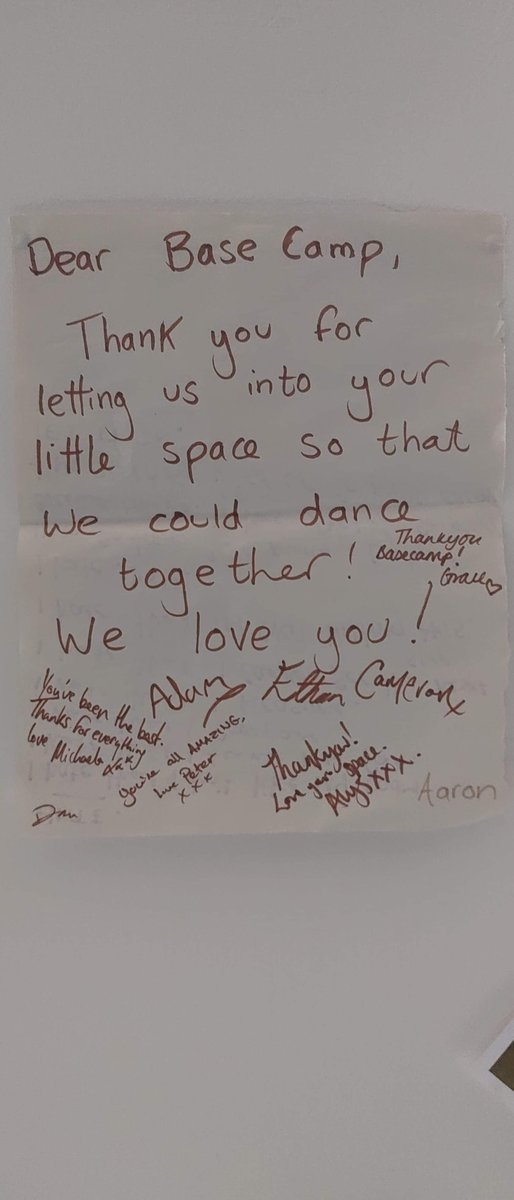 Dear Base Camp,
Thank you for
letting us into your
little space so that
we could dance
together!
Thankyou
Basecamp!
Grace
We love you!
You've been the best.
Thanks for everything
love Michaela xxx
Adam
Ethan
Cameron x
you're all AMAZING,
love Peter
xxx
Thankyou!
Love your space.
Alys xxx.
Aaron
Dan